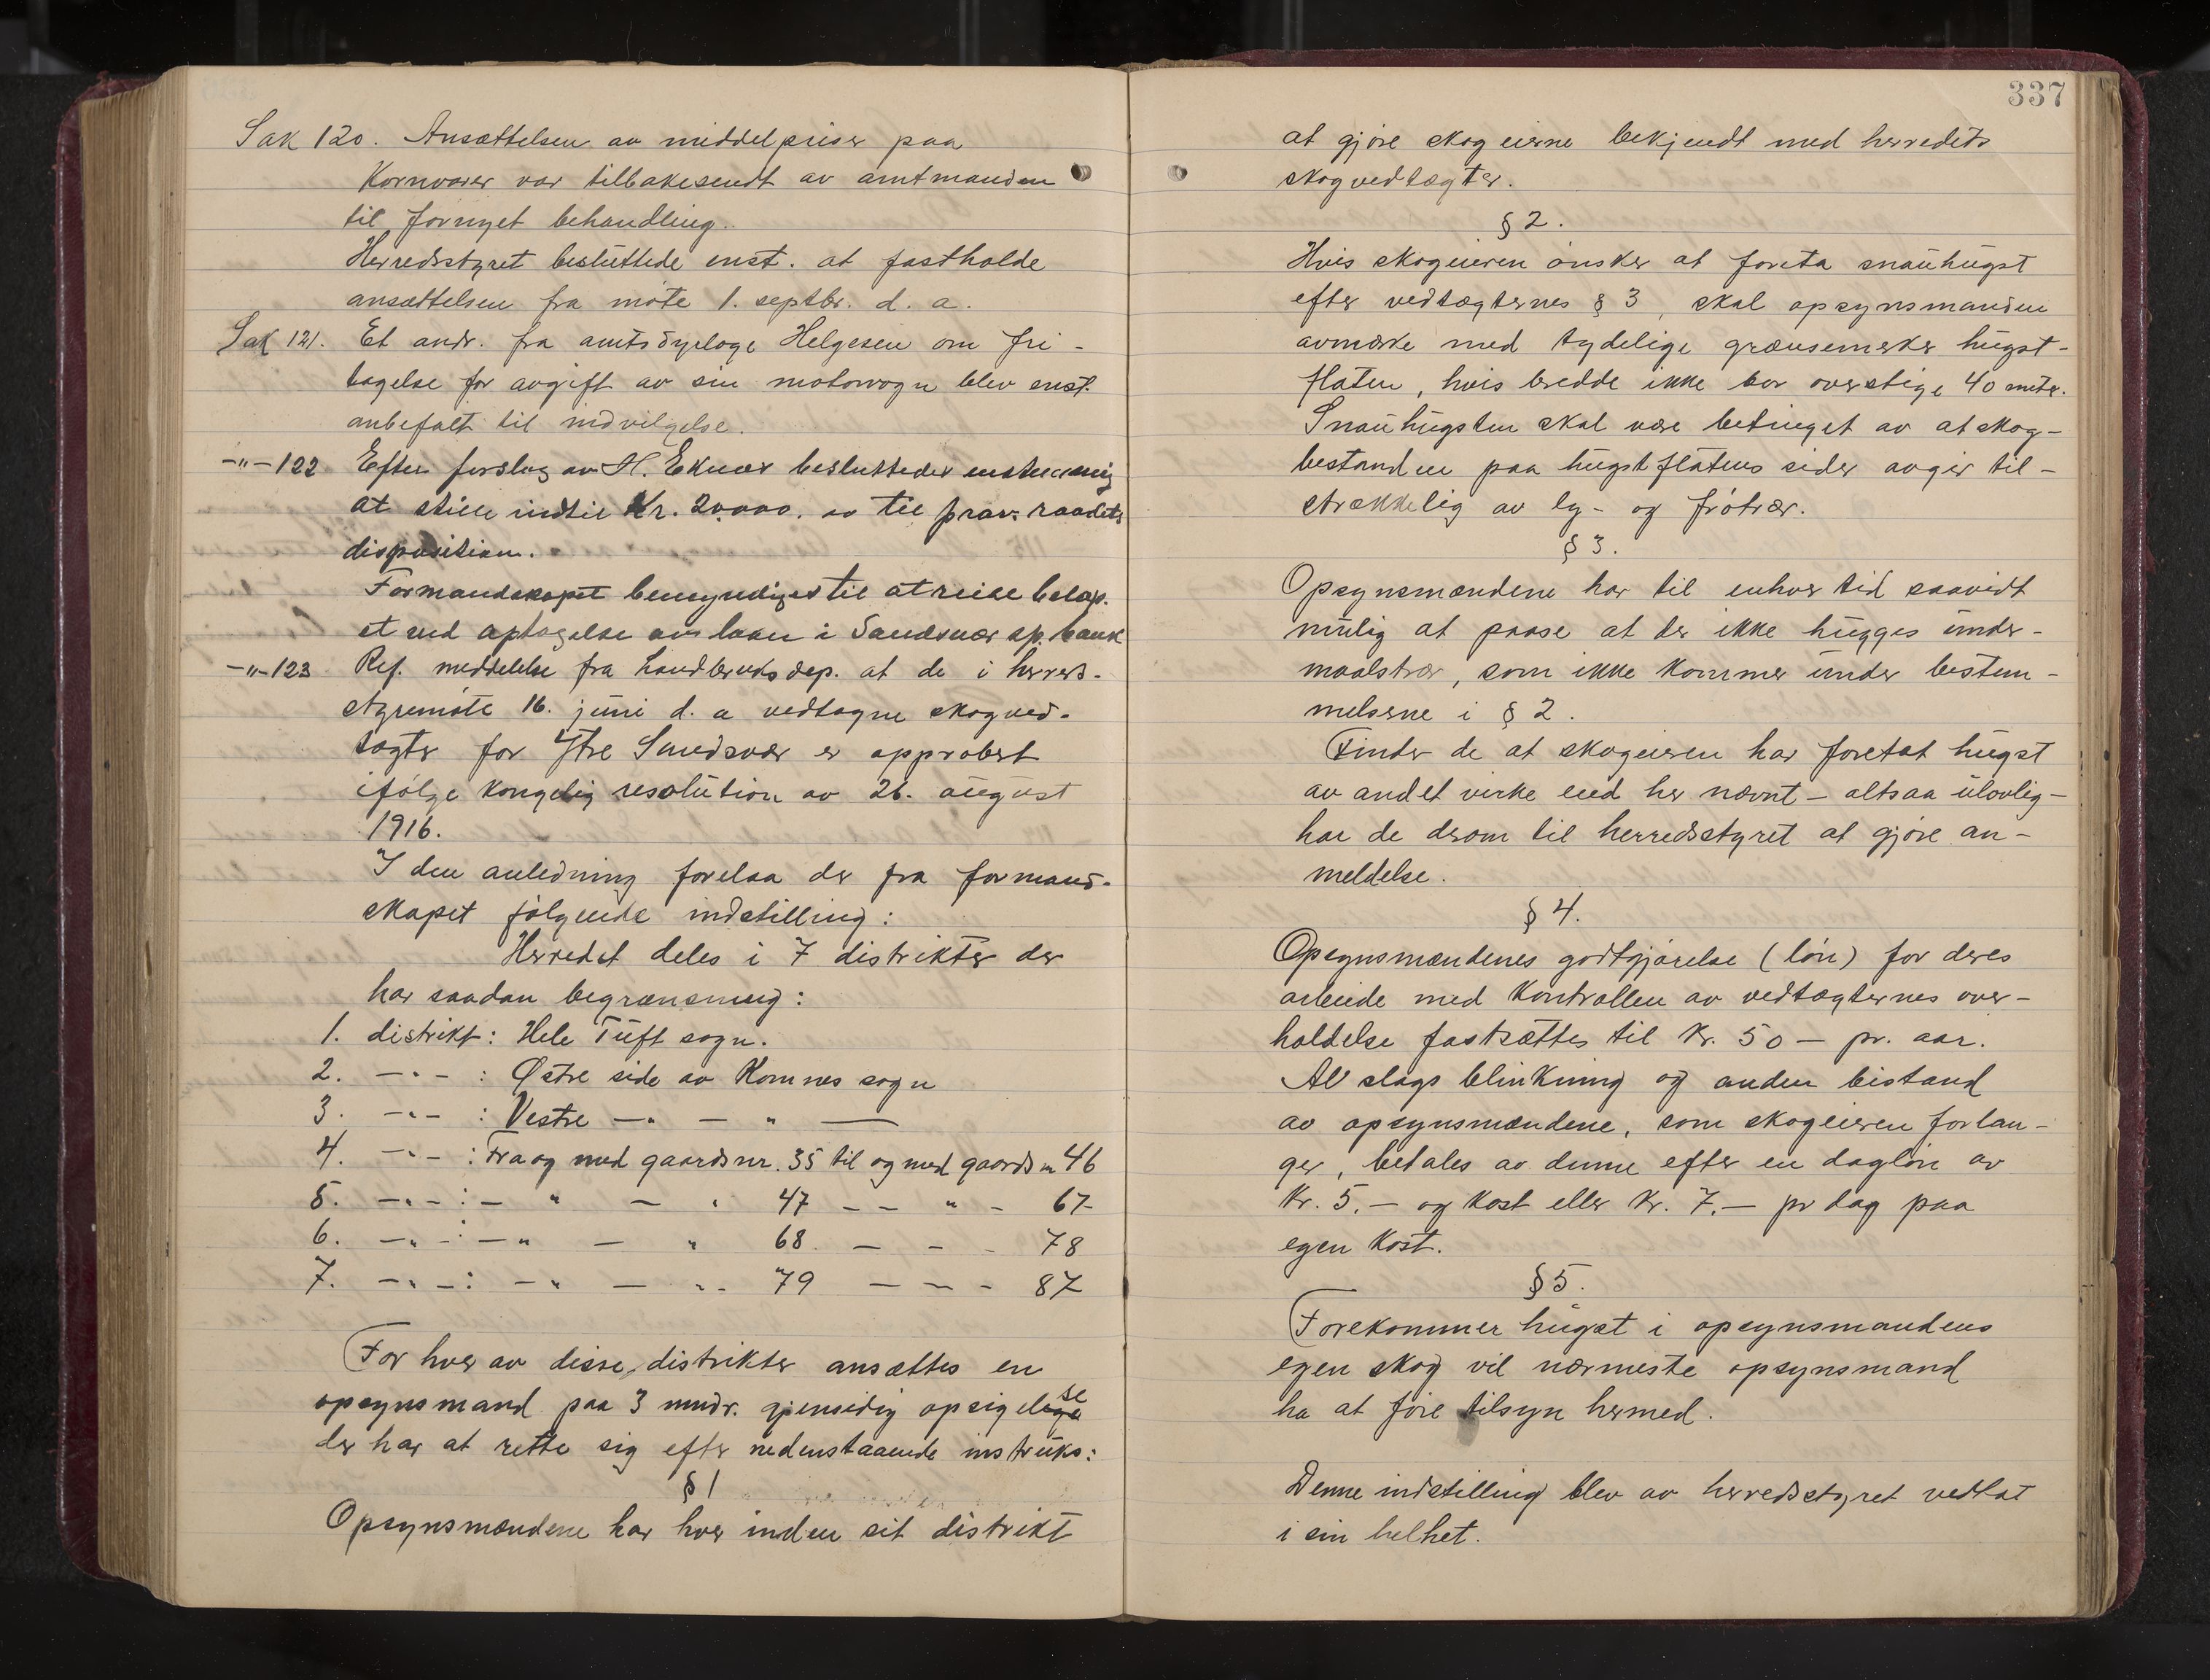 Sak 120. Ansættelsen av middelpriser paa
Kornvarer var tilbakesendt av amtmanden
til fornyet behandling.
Herredsstyret besluttede enst. at fastholde
ansættelsen fra møte 1. septbr. d. a.
Sak 121. Et andr. fra amtsdyrlæge Helgesen om fri-
tagelse for avgift av sin motorvogn blev enst.
anbefalt til indvilgelse.
-"- 122 Efter forslag av H. Eknær besluttedes enstemmig
at stille indtil Kr. 20.000. oo til prov. raadets
disposition.
Formandskapet bemyndiges til at reise beløp.
et ved optagelse av laan i Sandsvær sp.bank
-"- 123 Ref. meddelelse fra Landbruks dep. at de i herreds-
styremøte 16. juni d. a vedtagne skogved-
tægter for Ytre Sandsvær er approbert
ifølge kongelig resolution av 26. august
1916.
I den anledning forelaa der fra formand-
skapet følgende indstilling:
Herredet deles i 7 distrikter der
har saadan begrænsning:
1. distrikt: Hele Tuft sogn.
2. -"- : Østre side av Komnes sogn
3. -"- : Vestre -"- - " -
4. -"- : Fra og med gaardsnr. 35 til og med gaardsnr 46
5. -"- : - " - " 47 - - " - 67
6. -"- : - " - " 68 - - - 78
7. -"- : - " - " - 79 - - - 87
For hver av disse distrikter ansættes en
opsynsmand paa 3 mndr. gjensidig opsigelse
der har at rette sig efter nedenstaaende instruks:
§ 1
Opsynsmændene har hver inden sit distrikt
337
at gjøre skogeierne bekjendt med herredets
skogvedtægter.
§ 2.
Hvis skogeieren ønsker at foreta snauhugst
efter vedtægternes § 3, skal opsynsmanden
avmerke med tydelige grænsemerker hugst-
flaten, hvis bredde ikke bør overstige 40 meter.
Snauhugsten skal være betinget av at skog-
bestanden paa hugstflatens sider avgir til-
strækkelig av ly- og frøtrær.
§ 3.
Opsynsmændene har til enhver tid saavidt
mulig at paase at der ikke hugges under-
maalstrær, som ikke kommer under bestem-
melserne i § 2.
Finder de at skogeieren har foretat hugst
av andet virke end her nævnt - altsaa ulovlig -
har de derom til herredsstyret at gjøre an-
meldelse.
§ 4.
Opsynsmændenes godtgjørelse (løn) for deres
arbeide med kontrollen av vedtægternes over-
holdelse fastsættes til Kr. 50 - pr. aar.
Al slags blinkning og anden bistand
av opsynsmændene, som skogeieren forlan-
ger, betales av denne efter en dagløn av
Kr. 5.- og kost eller Kr. 7.- pr dag paa
egen kost.
§ 5.
Forekommer hugst i opsynsmandens
egen skog vil nærmeste opsynsmand
ha at føre tilsyn hermed.
Denne indstilling blev av herredsstyret vedtat
i sin helhet.